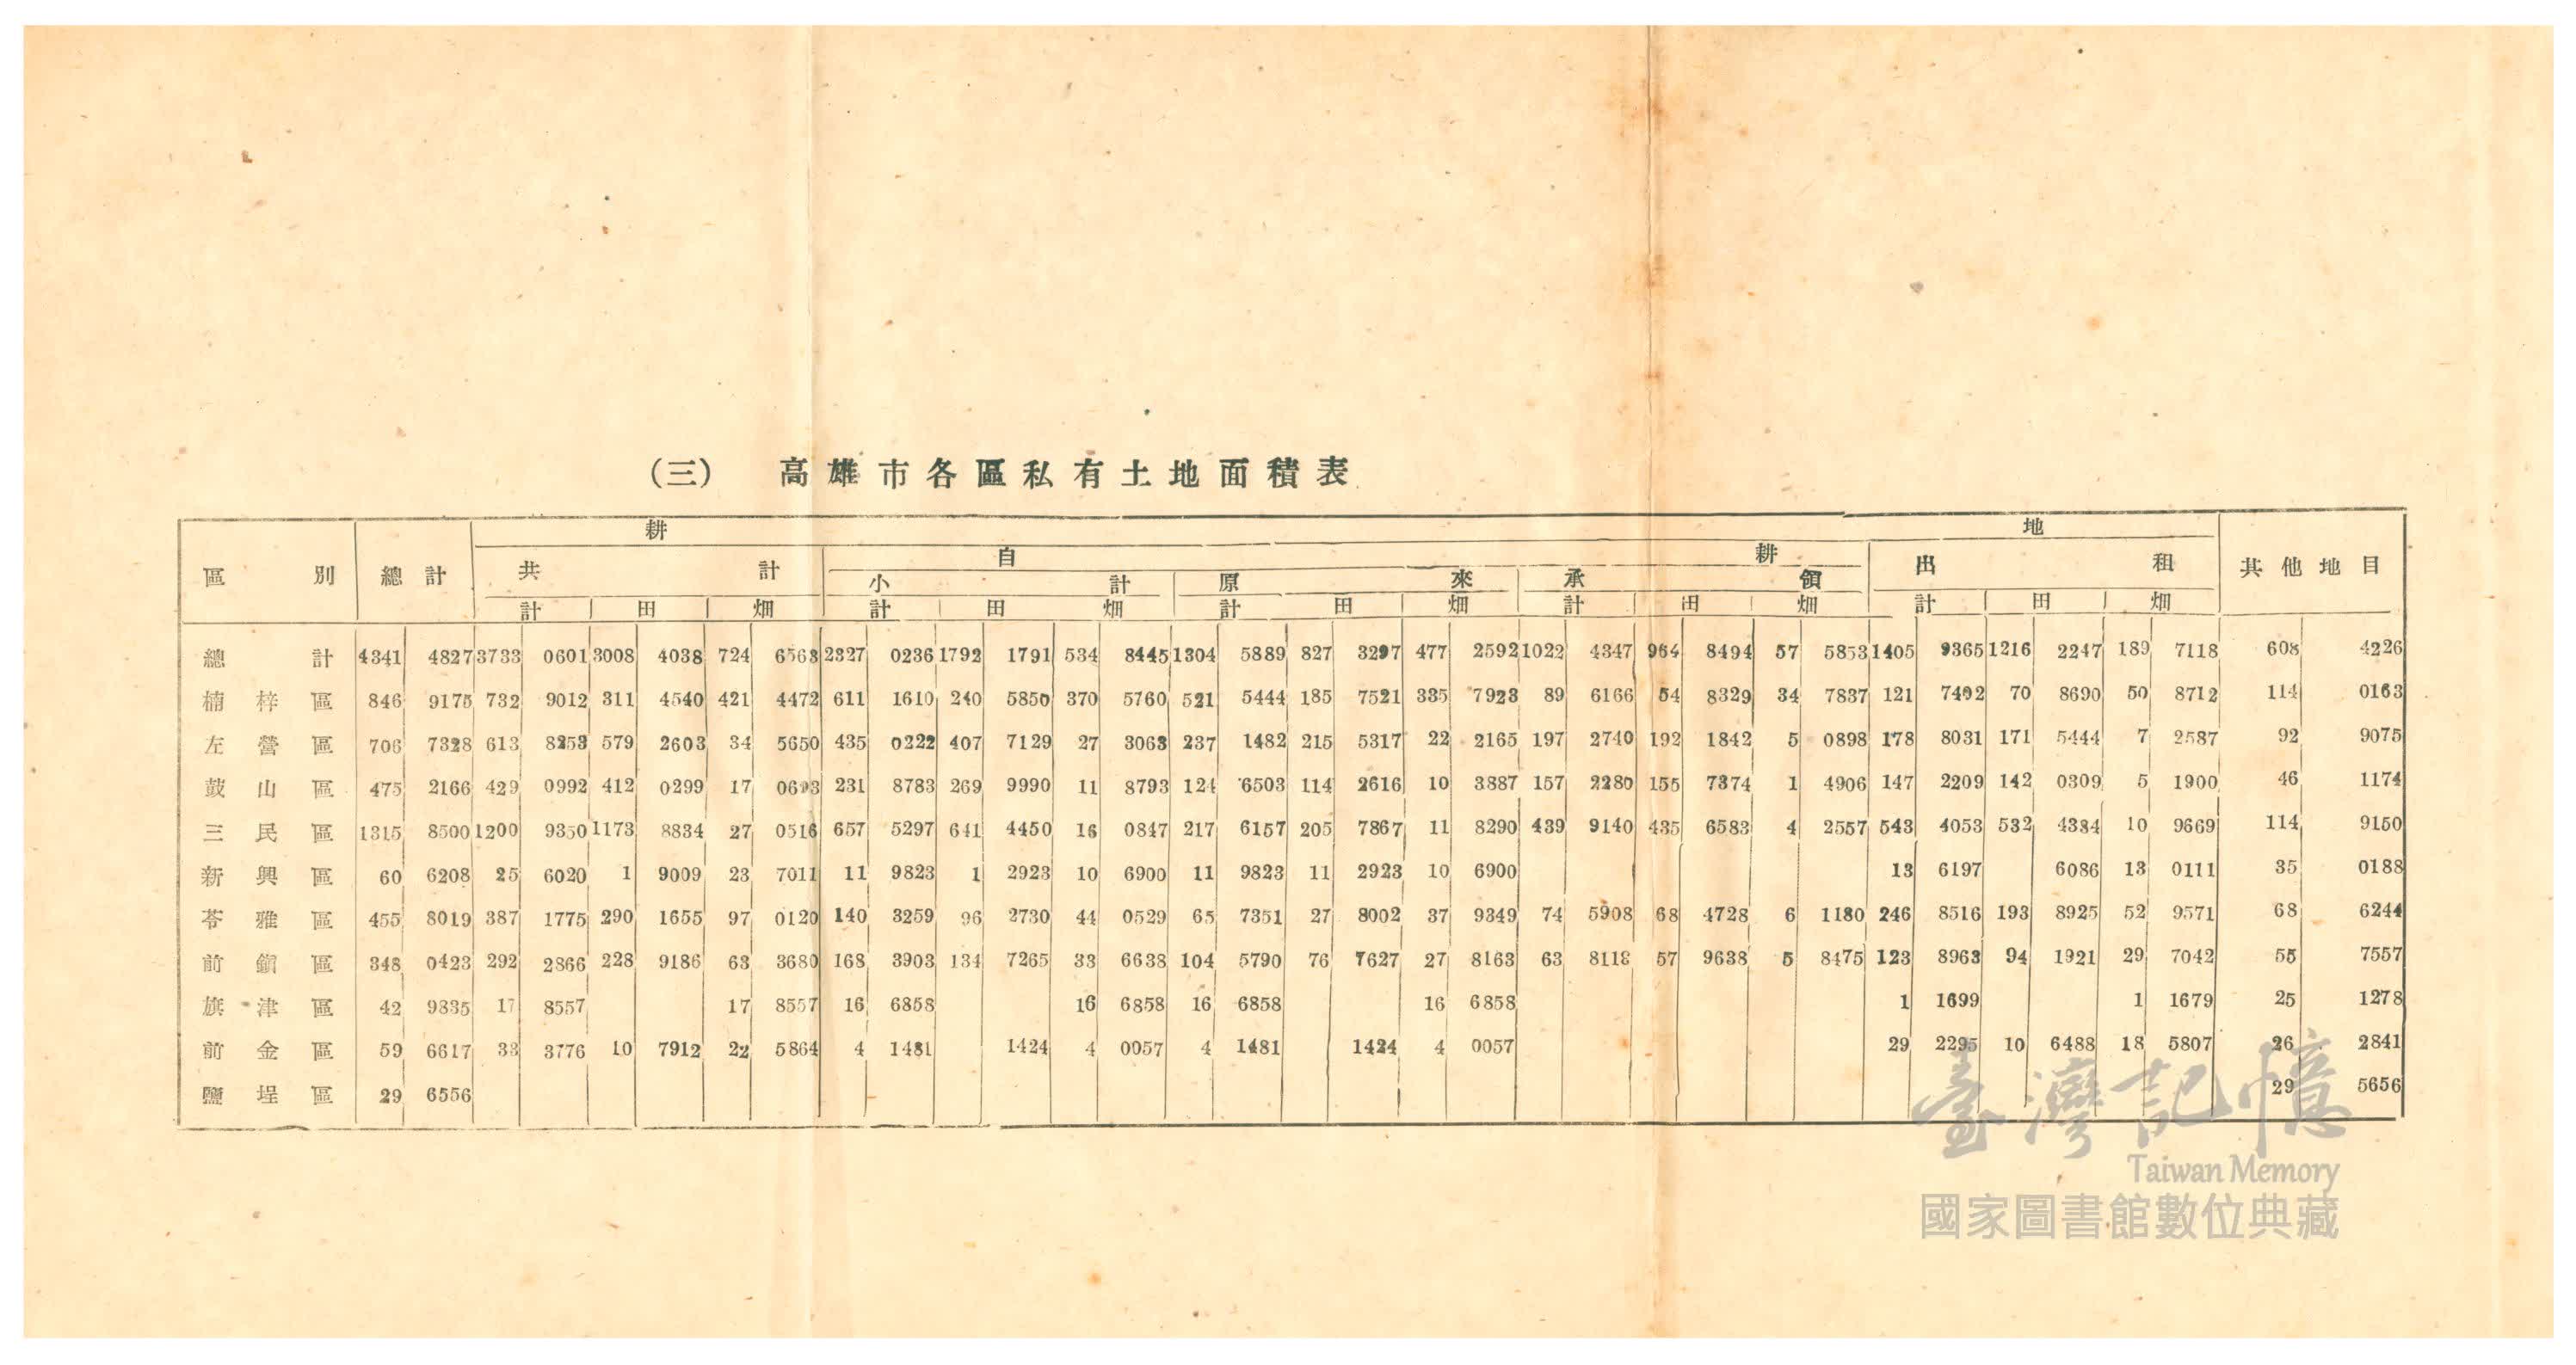 (三) 高雄市各區私有土地面積表
耕 地
區別 總計 共計 自耕 出租 其他地目
小計 原來 承領
計 田 畑 計 田 畑 計 田 畑 計 田 畑 計 田 畑
總計 4341 4827 3733 0601 3008 4038 724 6563 2327 0236 1792 1791 534 8445 1304 5889 827 3297 477 2592 1022 4347 964 8494 57 5853 1405 9365 1216 2247 189 7118 608 4226
楠梓區 846 9175 732 9012 311 4540 421 4472 611 1610 240 5850 370 5760 521 5444 185 7521 335 7923 89 6166 54 8329 34 7837 121 7402 70 8690 50 8712 114 0163
左營區 706 7328 613 8253 579 2603 34 5650 435 0222 407 7129 27 3063 237 1482 215 5317 22 2165 197 2740 192 1842 5 0898 178 8031 171 5444 7 2587 92 9075
鼓山區 475 2166 429 0992 412 0299 17 0693 231 8783 269 9990 11 8793 124 6503 114 2616 10 3887 157 2280 155 7374 1 4906 147 2209 142 0309 5 1900 46 1174
三民區 1315 8500 1200 9350 1173 8834 27 0516 657 5297 641 4450 16 0847 217 6157 205 7867 11 8290 439 9140 435 6583 4 2557 543 4053 532 4384 10 9669 114 9150
新興區 60 6208 25 6020 1 9009 23 7011 11 9823 1 2923 10 6900 11 9823 11 2923 10 6900 13 6197 6086 13 0111 35 0188
苓雅區 455 8019 387 1775 290 1655 97 0120 140 3259 96 2730 44 0529 65 7351 27 8002 37 9349 74 5908 68 4728 6 1180 246 8516 193 8925 52 9571 68 6244
前鎮區 348 0423 292 2866 228 9186 63 3680 168 3903 134 7265 33 6638 104 5790 76 7627 27 8163 63 8113 57 9638 5 8475 123 8963 94 1921 29 7042 55 7557
旗津區 42 9835 17 8557 17 8557 16 6858 16 6858 16 6858 16 6858 1 1699 1 1679 25 1278
前金區 59 6617 33 3776 10 7912 22 5864 4 1481 1424 4 0057 4 1481 1424 4 0057 29 2295 10 6488 18 5807 26 2841
鹽埕區 29 6556 29 5656
臺灣記憶
Taiwan Memory
國家圖書館數位典藏